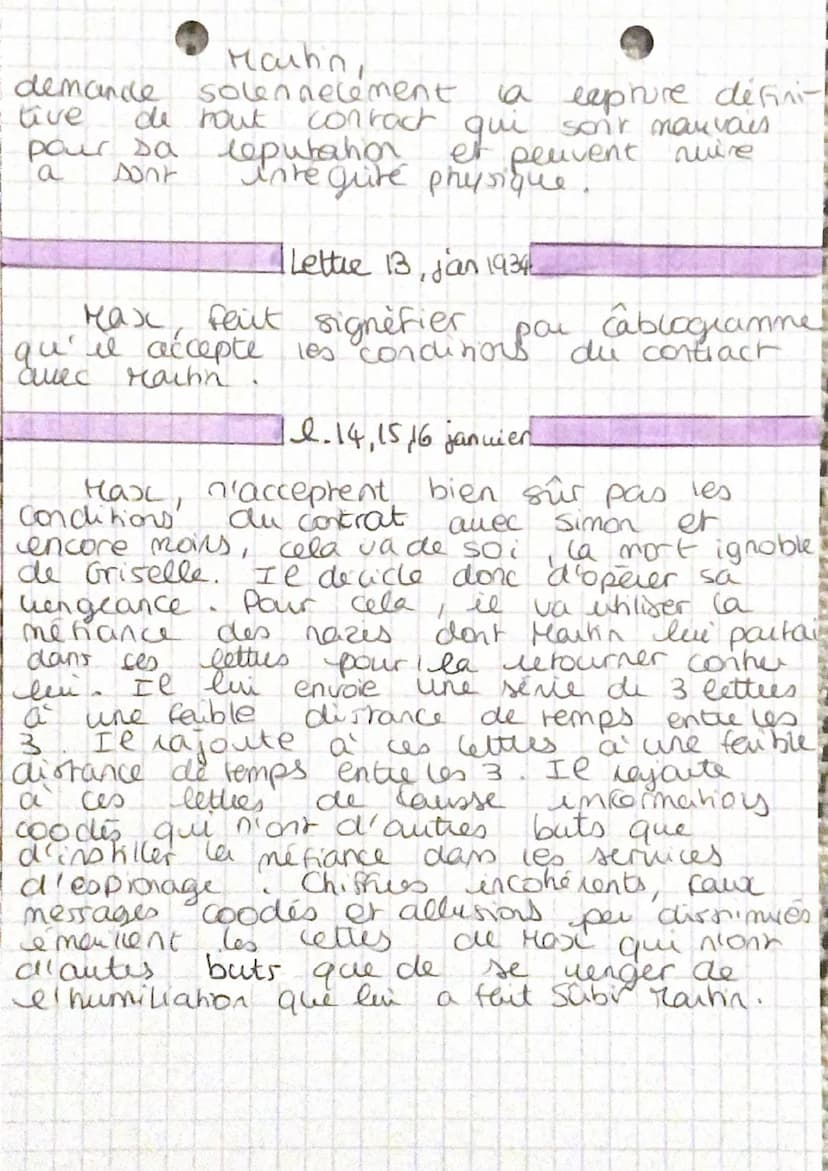 Martin,
demande solennelement la rupture défini-
tive de tout contact qui soit mauvais
pour sa reputation et peuvent nuire
a sont intégrité physique.
Lettre 13, jan 1934
Max, feut signèfier par câblogramme
qu'il accepte les conditions du contract
avec Martin.
l.14,15,16 janvier
Max, n'acceptent bien sûr pas les
conditions du contrat avec Simon et
encore moins, cela va de soi, la mort ignoble
de Griselle. Il decide donc d'opérer sa
vengeance. Pour cela, il va utiliser la
méfiance des nazis dont Martin lui partai
dans ces lettres pour la retourner contre
lui. Il lui envoie une série de 3 lettres
à une feible distance de temps entre les
3. Il rajoute à ces lettres à une feible
distance de temps entre les 3. Il rajoute
à ces lettres de fausse informations
coodés qui n'ont d'autres buts que
d'instiller la méfiance dans les services
d'espionage. Chiffres incohérents, faux
messages coodés et allusions peu dissimulés
émaillent les lettes de Max qui n'ont
d'autes buts que de se venger de
l'humiliation que lui a fait subir Martin.